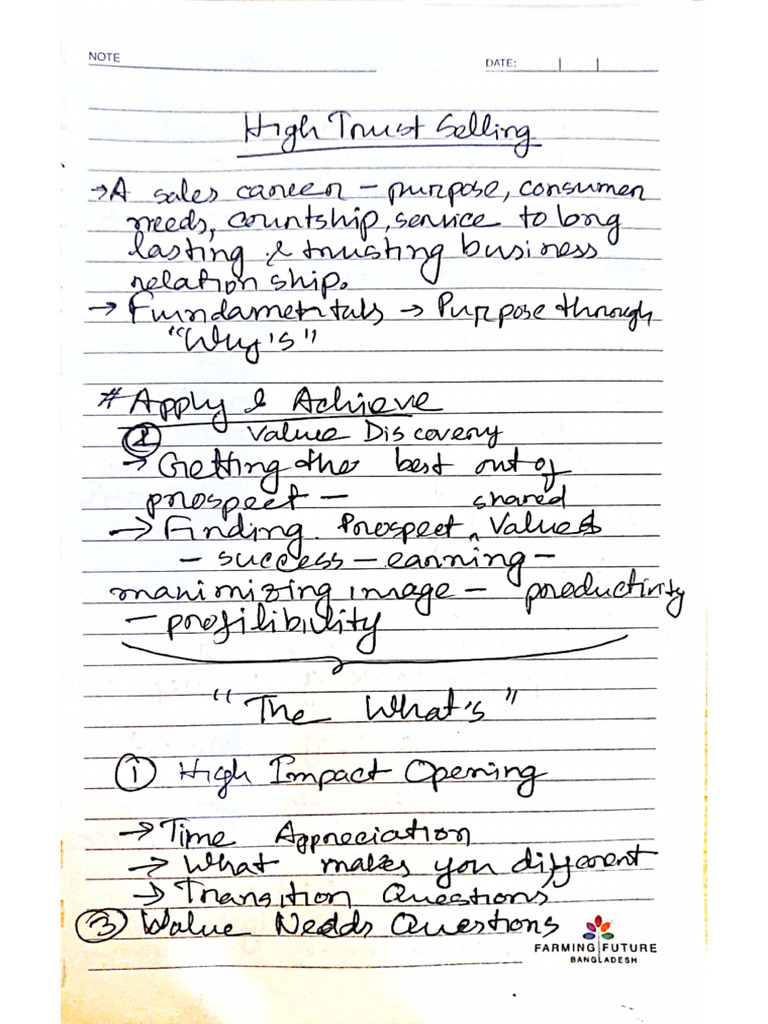 NOTE
DATE:
High Trust Selling
→ A sales career - purpose, consumer
needs, countship, service to long
lasting & trusting business
relationship.
→ Fundamentals → Purpose through
"Why's"
# Apply & Achieve
② Value Discovery
→ Getting the best out of
prospect - shared
→ Finding Prospect ^ Values
- success - earning -
manimizing image - productivity
- profilibility
"The What's"
① High Impact Opening
→ Time Appreciation
→ What makes you different
→ Transition Questions
③ Value Needs Questions
FARMING FUTURE
BANGLADESH